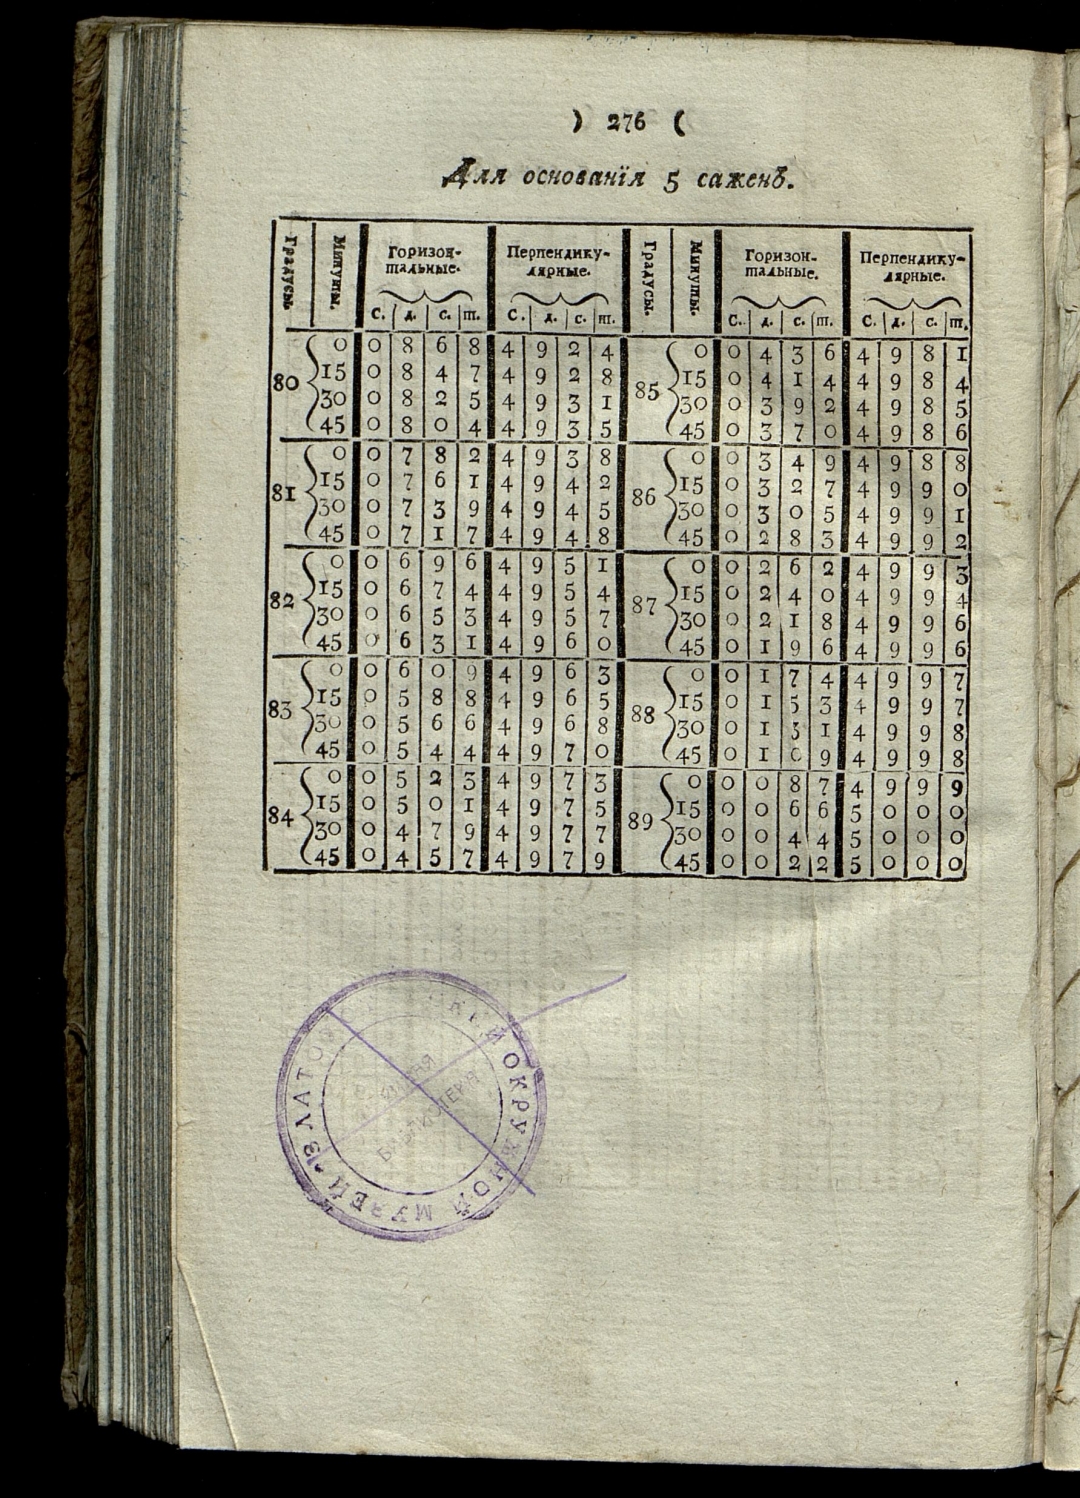 ) 276 (
Для основанїя 5 саженъ.
Градусы. Минуты. Горизон-тальные. Перпендику-лярные. Градусы. Минуты. Горизон-тальные. Перпендику-лярные.
С. д. с. т. С. д. с. т. С. д. с. т. С. д. с. т.
80 0 0 8 6 8 4 9 2 4 85 0 0 4 3 6 4 9 8 1
15 0 8 4 7 4 9 2 8 15 0 4 1 4 4 9 8 4
30 0 8 2 5 4 9 3 1 30 0 3 9 2 4 9 8 5
45 0 8 0 4 4 9 3 5 45 0 3 7 0 4 9 8 6
81 0 0 7 8 2 4 9 3 8 86 0 0 3 4 9 4 9 8 8
15 0 7 6 1 4 9 4 2 15 0 3 2 7 4 9 9 0
30 0 7 3 9 4 9 4 5 30 0 3 0 5 4 9 9 1
45 0 7 1 7 4 9 4 8 45 0 2 8 3 4 9 9 2
82 0 0 6 9 6 4 9 5 1 87 0 0 2 6 2 4 9 9 3
15 0 6 7 4 4 9 5 4 15 0 2 4 0 4 9 9 4
30 0 6 5 3 4 9 5 7 30 0 2 1 8 4 9 9 6
45 0 6 3 1 4 9 6 0 45 0 1 9 6 4 9 9 6
83 0 0 6 0 9 4 9 6 3 88 0 0 1 7 4 4 9 9 7
15 0 5 8 8 4 9 6 5 15 0 1 5 3 4 9 9 7
30 0 5 6 6 4 9 6 8 30 0 1 3 1 4 9 9 8
45 0 5 4 4 4 9 7 0 45 0 1 0 9 4 9 9 8
84 0 0 5 2 3 4 9 7 3 89 0 0 0 8 7 4 9 9 9
15 0 5 0 1 4 9 7 5 15 0 0 6 6 5 0 0 0
30 0 4 7 9 4 9 7 7 30 0 0 4 4 5 0 0 0
45 0 4 5 7 4 9 7 9 45 0 0 2 2 5 0 0 0
ОКРУЖНОЙ МУЗЕЙ